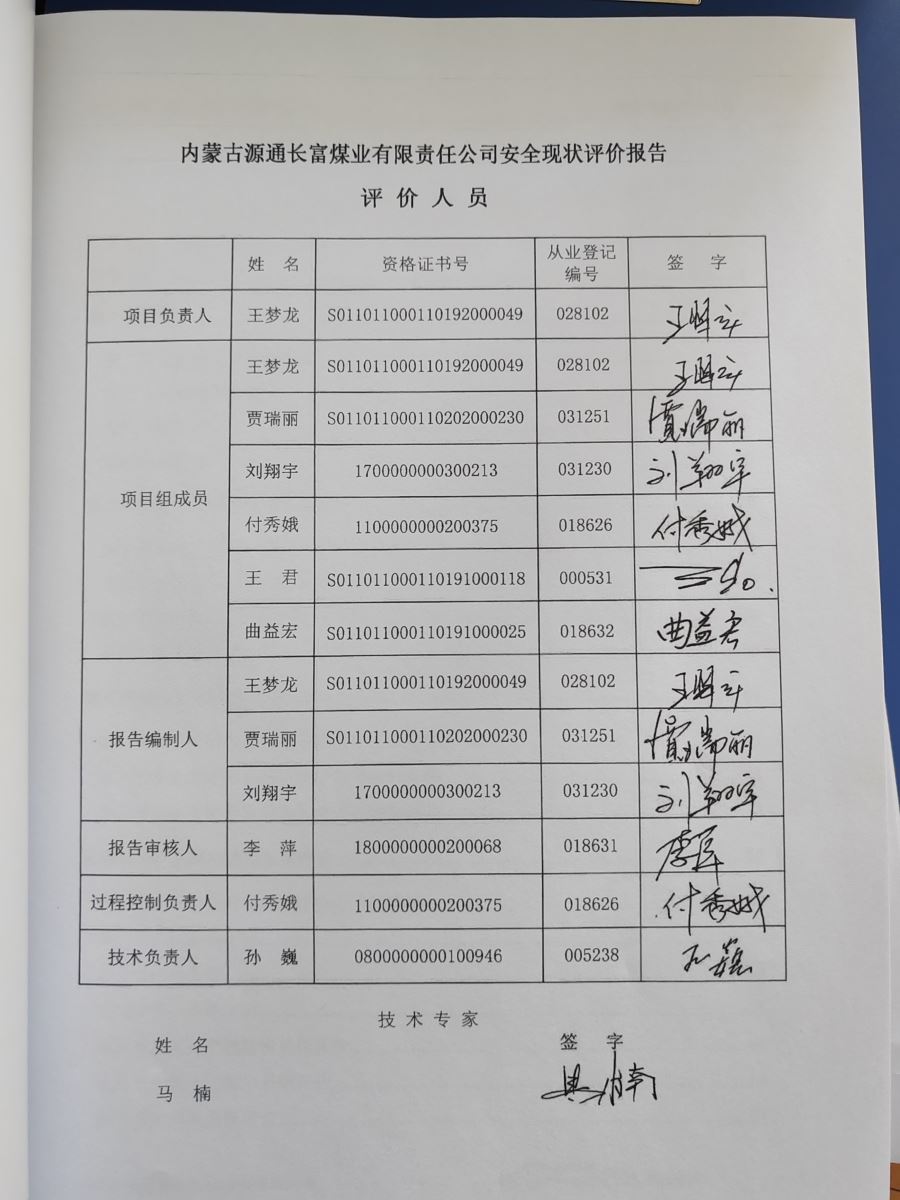 内蒙古源通长富煤业有限责任公司安全现状评价报告
评价人员
姓 名 资格证书号 从业登记编号 签 字
项目负责人 王梦龙 S011011000110192000049 028102 王梦龙
项目组成员 王梦龙 S011011000110192000049 028102 王梦龙
贾瑞丽 S011011000110202000230 031251 贾瑞丽
刘翔宇 1700000000300213 031230 刘翔宇
付秀娥 1100000000200375 018626 付秀娥
王 君 S011011000110191000118 000531 王君
曲益宏 S011011000110191000025 018632 曲益宏
报告编制人 王梦龙 S011011000110192000049 028102 王梦龙
贾瑞丽 S011011000110202000230 031251 贾瑞丽
刘翔宇 1700000000300213 031230 刘翔宇
报告审核人 李 萍 1800000000200068 018631 李萍
过程控制负责人 付秀娥 1100000000200375 018626 付秀娥
技术负责人 孙 巍 0800000000100946 005238 孙巍
技术专家
姓 名 签 字
马 楠 马楠